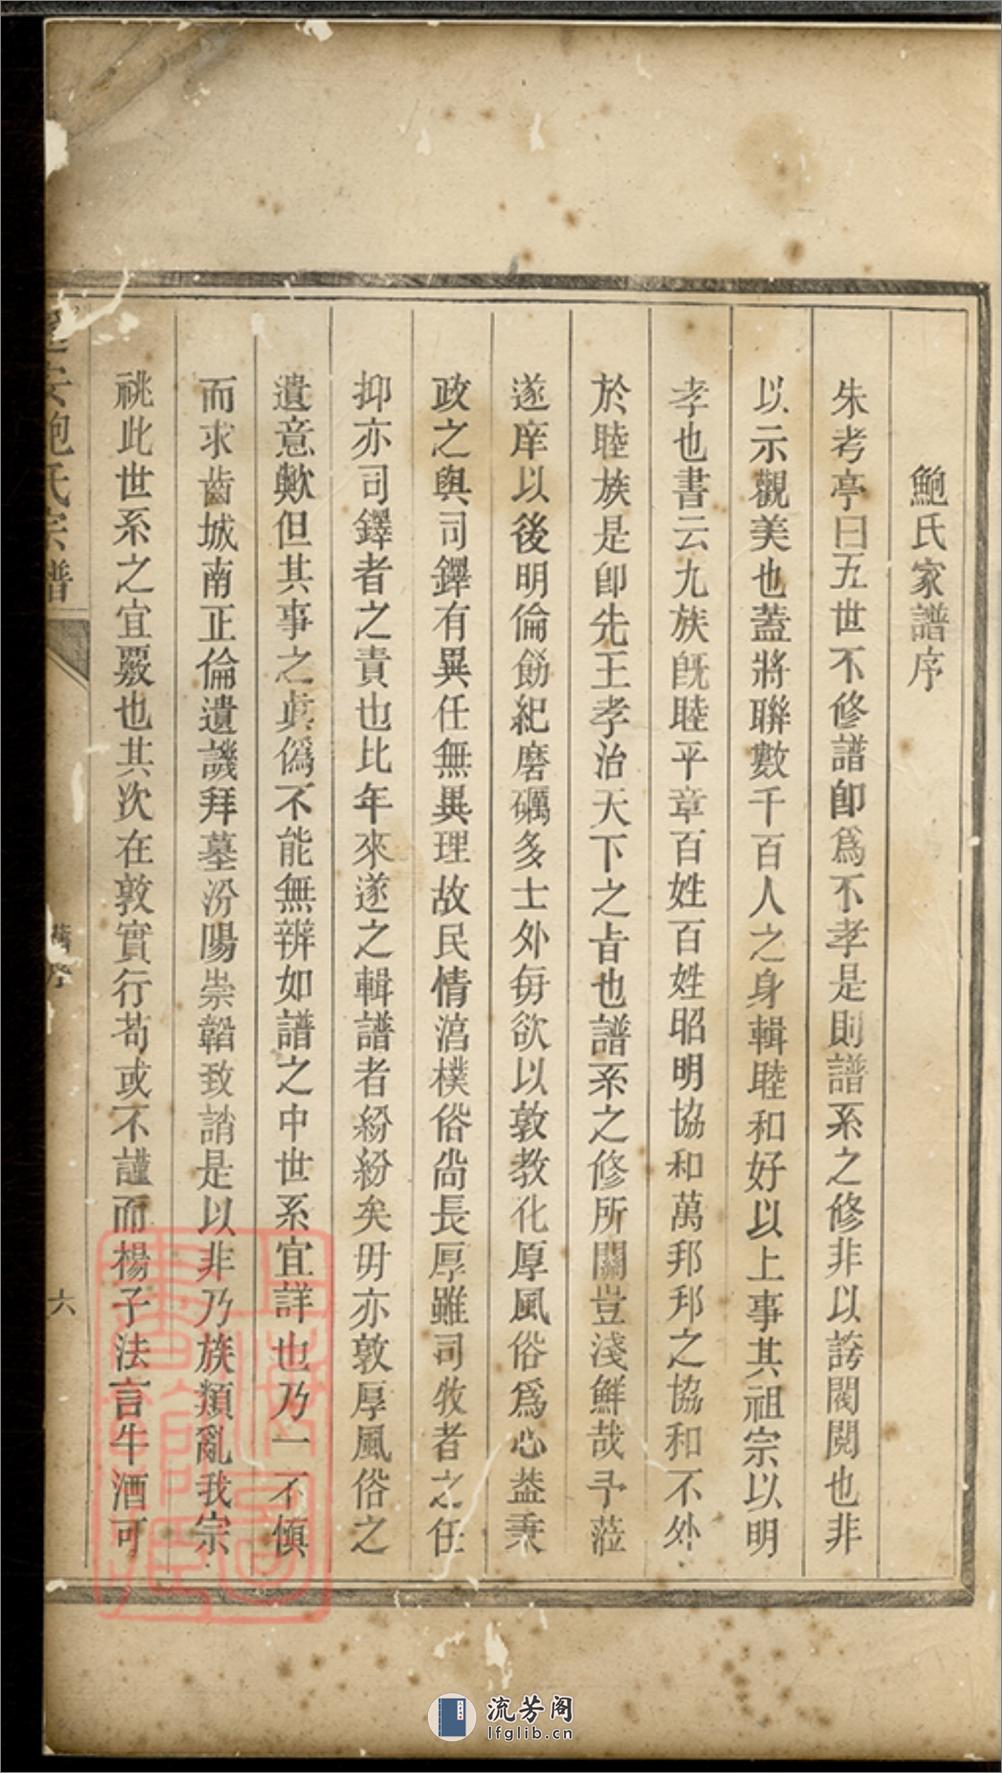 鮑氏家譜序
朱考亭曰五世不修譜卽爲不孝是則譜系之修非以誇閥閱也非
以示觀美也蓋將聯數千百人之身輯睦和好以上事其祖宗以明
孝也書云九族旣睦平章百姓百姓昭明協和萬邦邦之協和不外
於睦族是卽先王孝治天下之旨也譜系之修所關豈淺鮮哉予蒞
遂庠以後明倫飭紀磨礪多士外每欲以敦教化厚風俗爲心蓋秉
政之與司鐸有異任無異理故民情澆樸俗尚長厚雖司牧者之任
抑亦司鐸者之責也比年來遂之輯譜者紛紛矣毋亦敦厚風俗之
遺意歟但其事之眞僞不能無辨如譜之中世系宜詳也乃一不愼
而求齒城南正倫遺譏拜墓汾陽崇韜致誚是以非乃族類亂我宗
祧此世系之宜覈也其次在敦實行苟或不謹而楊子法言牛酒可
安鮑氏宗譜
舊序
六
流芳阁
lfglib.cn